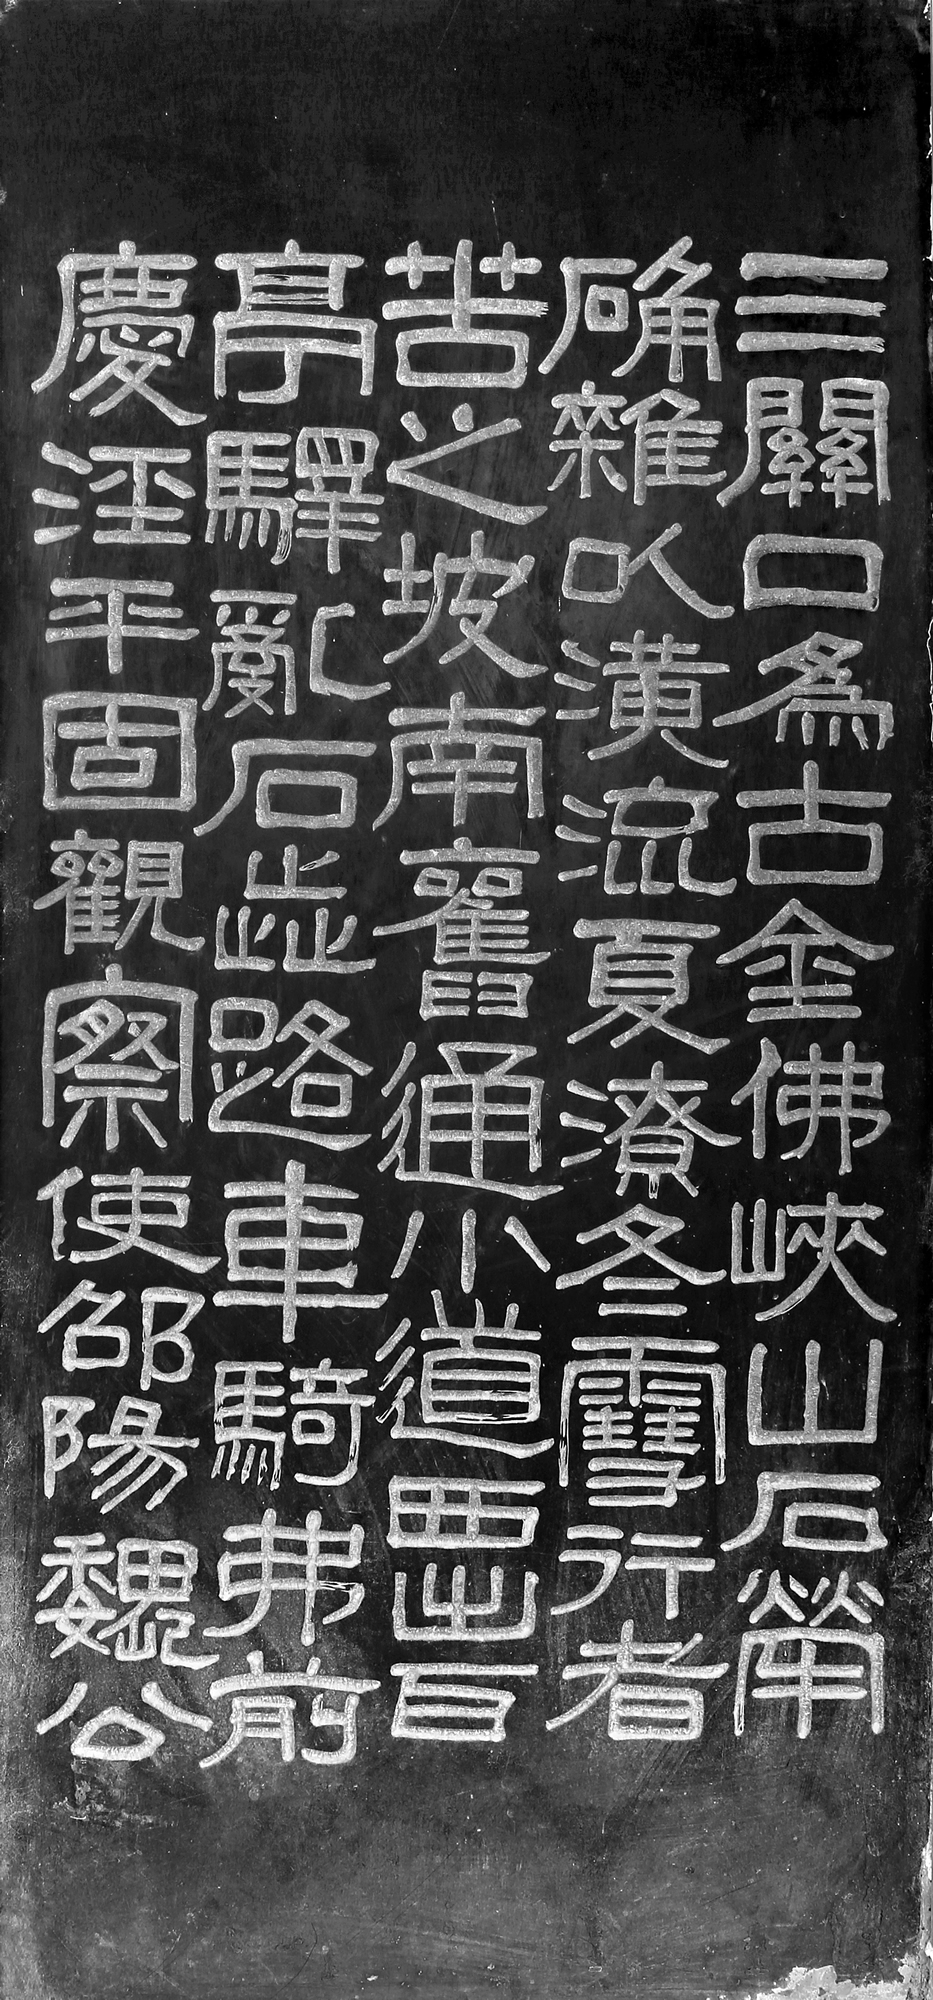 三關口為古金佛峽山石犖
确雜以潢流夏潦冬雪行者
苦之坡南舊通小道西出百
亭驛亂石歮路車騎弗前
慶涇平固觀察使邵陽魏公